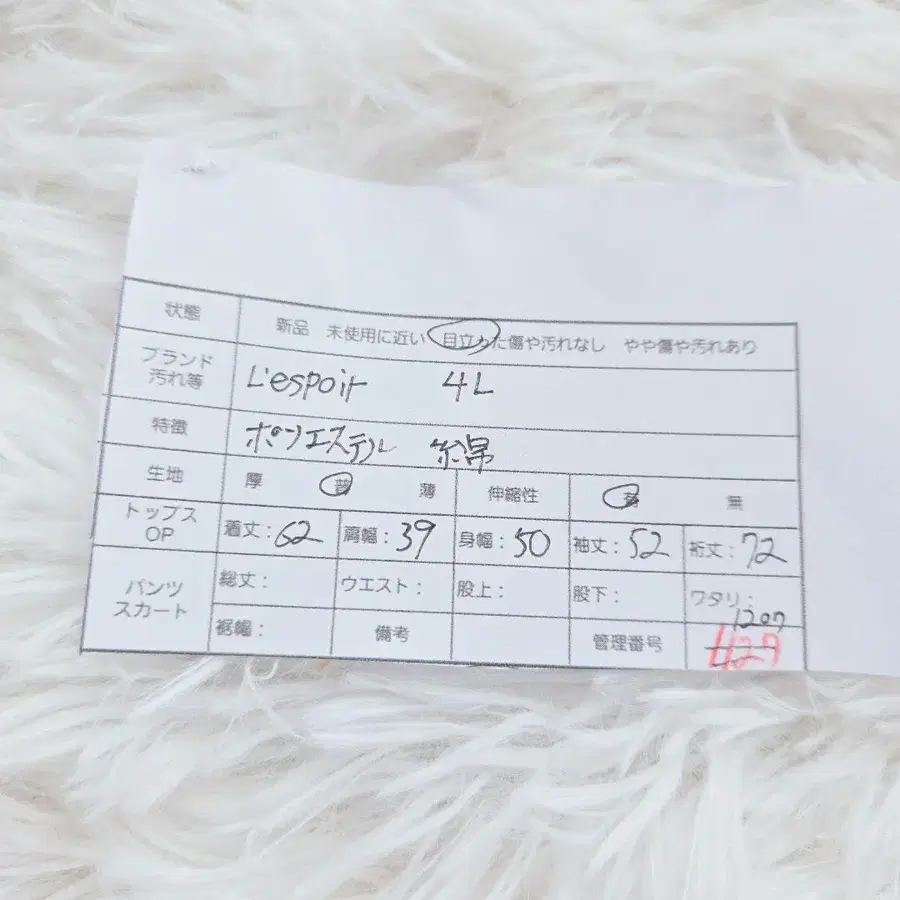 状態 新品 未使用に近い 目立った傷や汚れなし やや傷や汚れあり
ブランド
汚れ等 L'espoir 4L
特徴 ポリエステル 綿
生地 厚 普 薄 伸縮性 有 無
トップス
OP 着丈:62 肩幅:39 身幅:50 袖丈:52 裄丈:72
パンツ
スカート 総丈: ウエスト: 股上: 股下: ワタリ:
裾幅: 備考 管理番号 1207